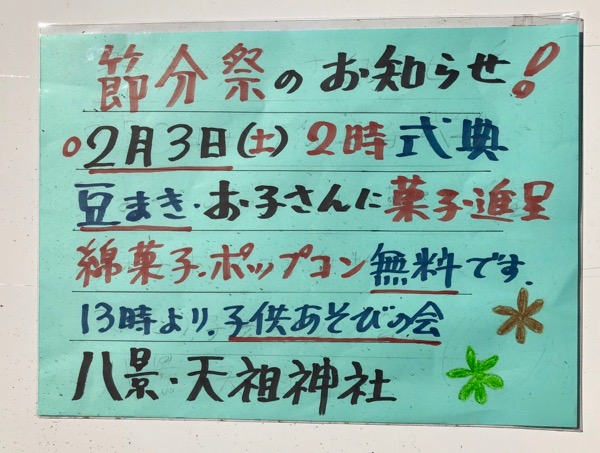 節分祭のお知らせ!
○2月3日(土)2時式典
豆まき・お子さんに菓子進呈
綿菓子.ポップコン無料です.
13時より.子供あそびの会
八景・天祖神社